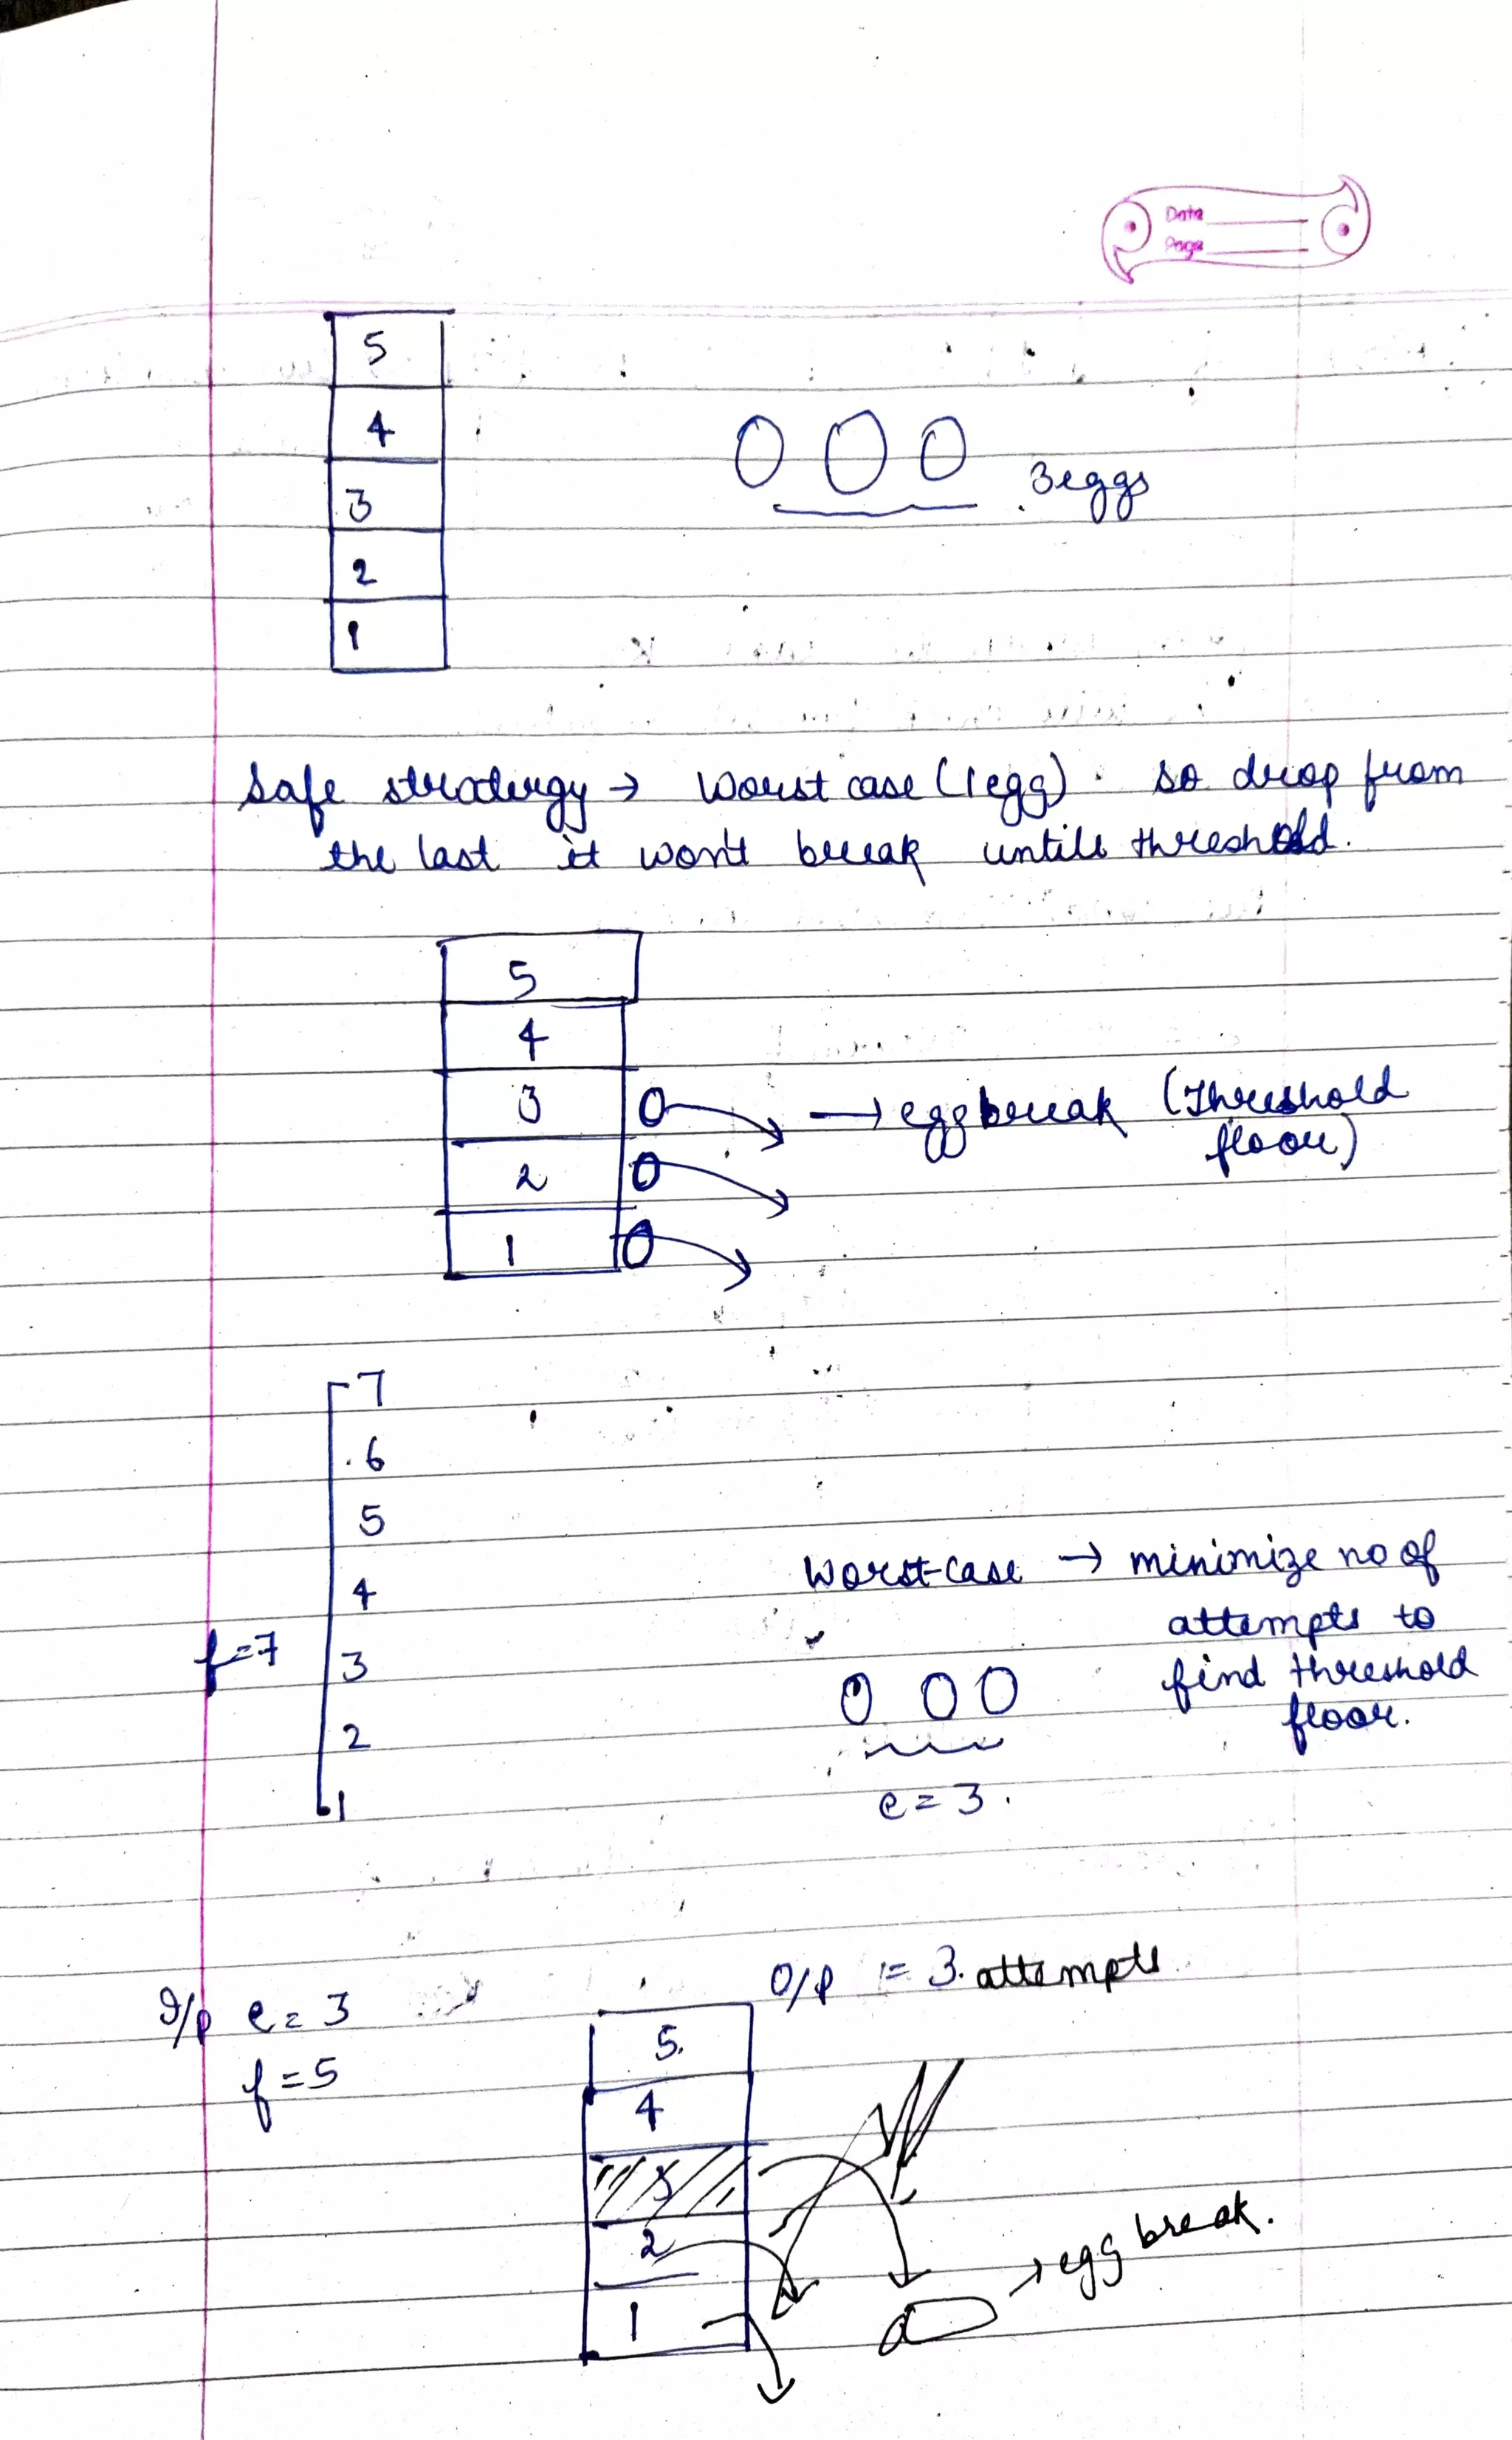 Date
Page
5
4
3
2
1
3eggs
Safe stratergy → Worst case (1 egg). so drop from
the last it won't break untill threshold.
5
4
3
2
1
→ egg break (Threshold
floor)
7
6
5
4
3
2
1
f=7
Worst-case → minimize no of
attempts to
find threshold
floor.
e = 3.
O/P = 3. attempts
I/p e = 3
f = 5
5.
4
3
2
1
→ egg break.